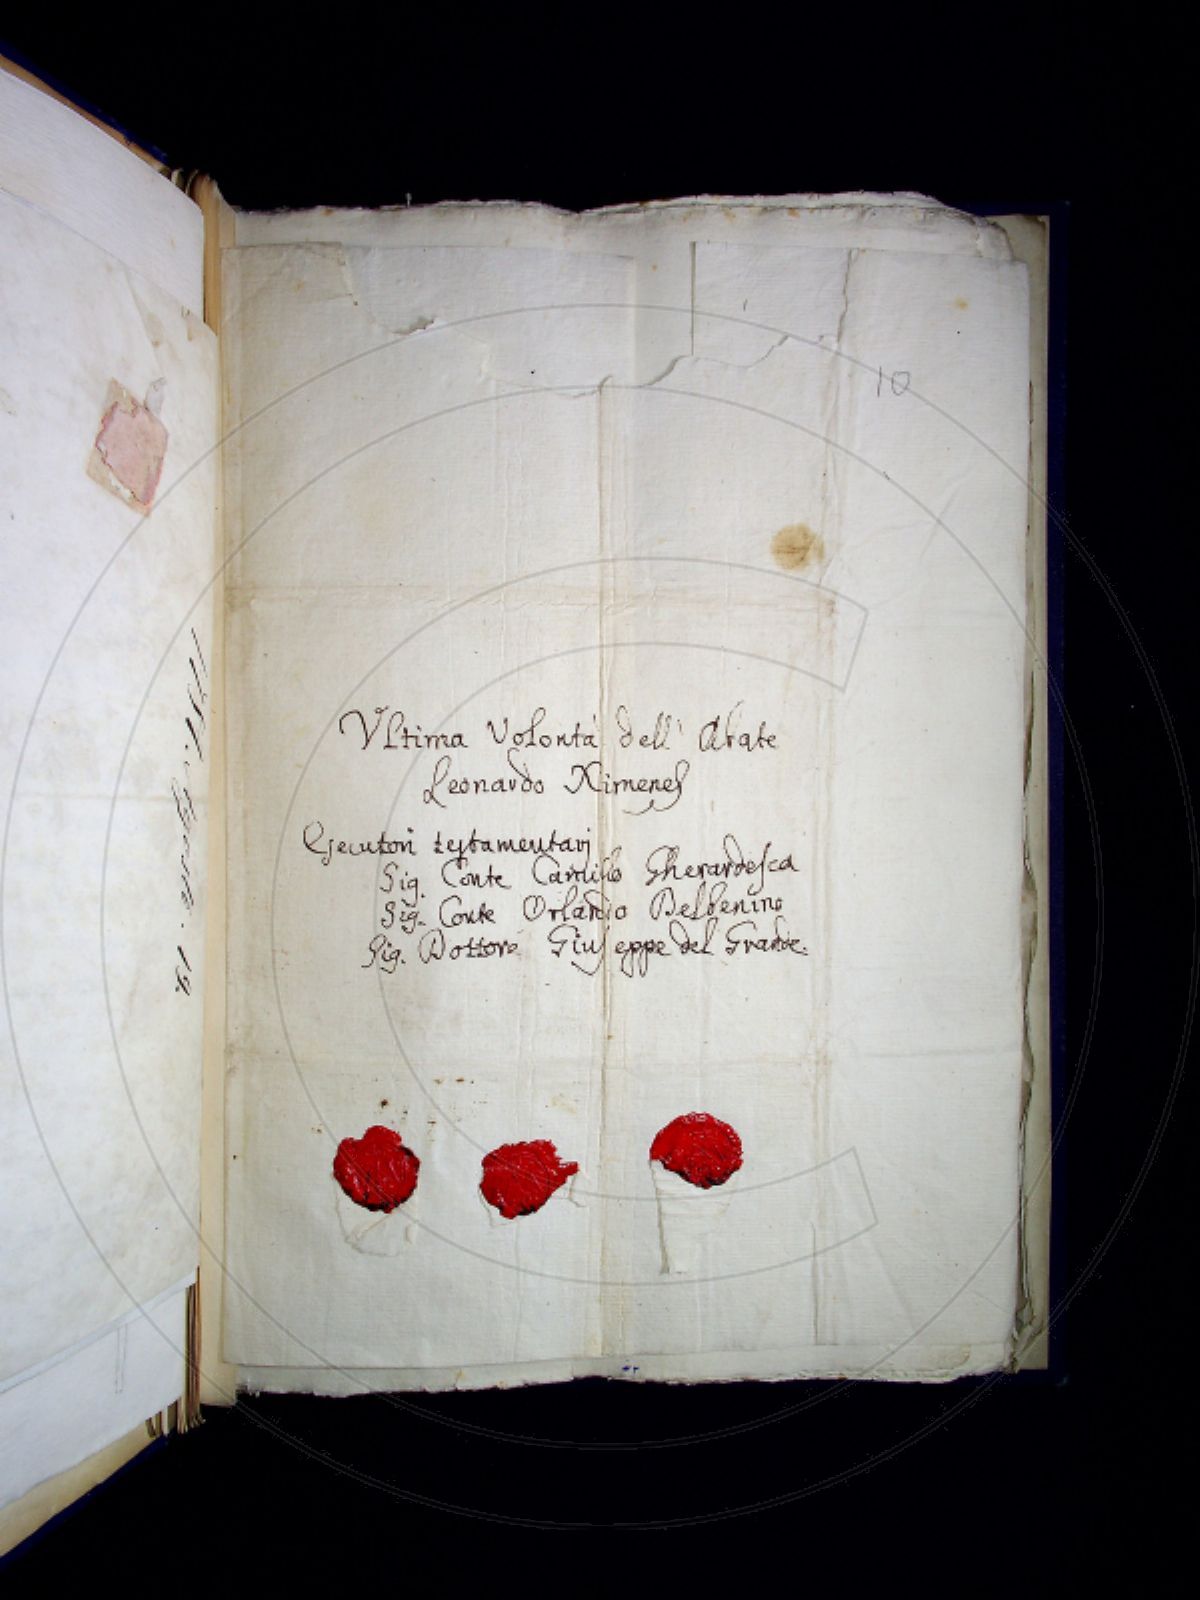 10
Ultima Volontà dell' Abate
Leonardo Ximenes
Esecutori testamentarj
Sig. Conte Camillo Gherardesca
Sig. Conte Orlando Delbenino
Sig. Dottore Giuseppe del Grande.